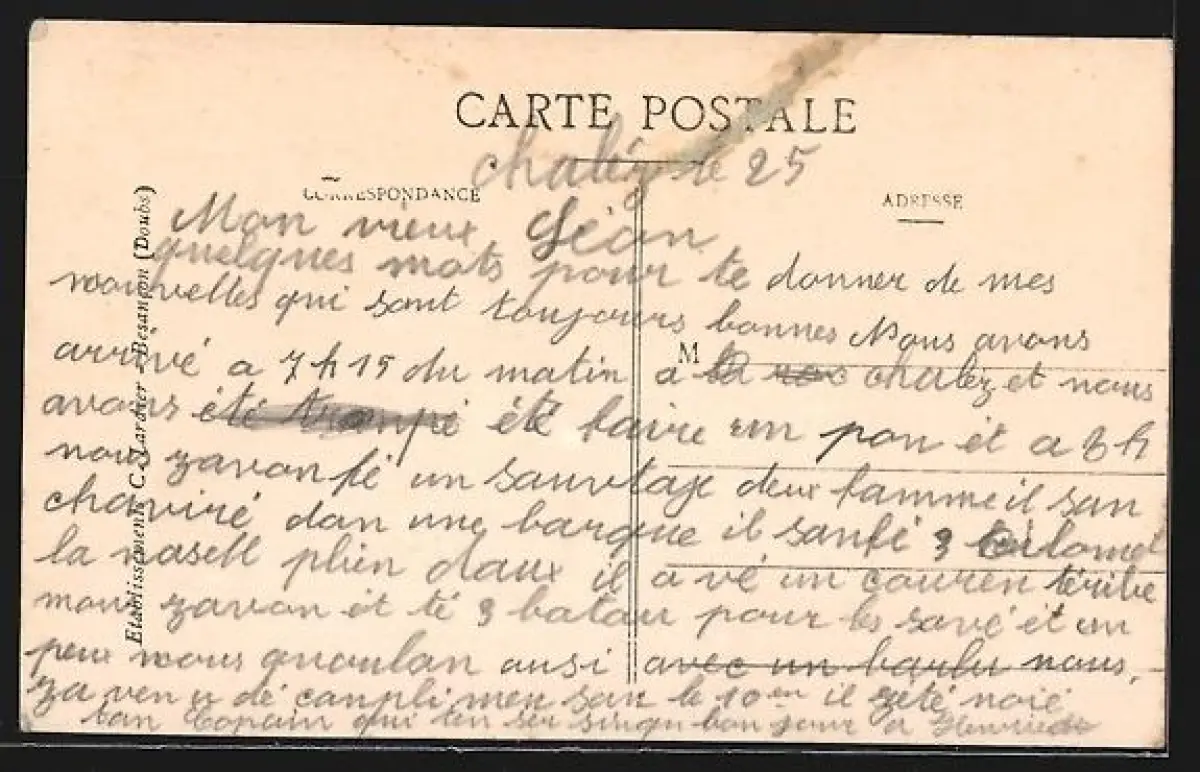 CARTE POSTALE
chalèz le 25
CORRESPONDANCE
ADRESSE
Etablissements C. Lardier - Besançon (Doubs)
M
Mon vieux Léon
quelques mots pour te donner de mes
nouvelles qui sont toujours bonnes Nous avons
arrivé a 7 h 15 du matin a chalèz et nous
avons été trompé été faire un pon et a 8 h
nou zavon fé un sauvtaje deux famme il son
chaviré dan une barque il sanfé 3
la nasell plien daux il a vé un couren téribe
nou zavon et té 3 batau pour les savé et un
peux nous quoulan ausi avec un nous
za ven u dé canpli men sur le 10 en il zeté noié
ton Copain qui ten ser bon jour a